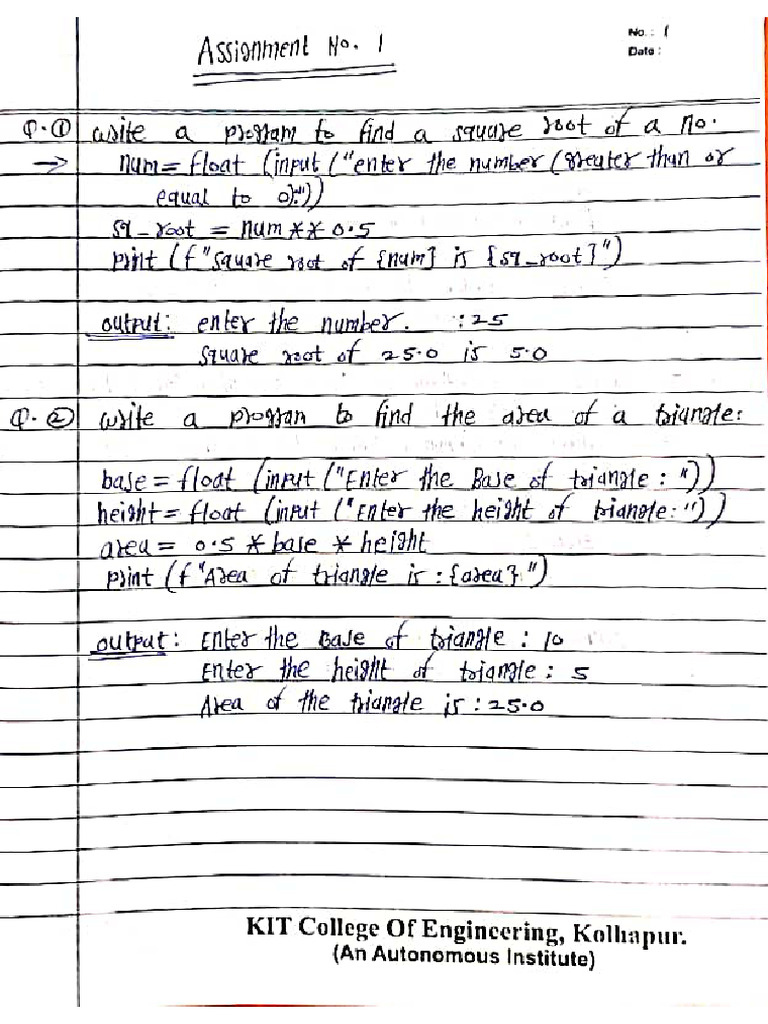 Assignment No. 1
No. : 1
Date :
Q.① write a program to find a square root of a no.
→ num= float (input ("enter the number (greater than or
equal to 0):"))
sq_root = num ** 0.5
print (f "square root of {num} is {sq_root}")
output: enter the number. :25
square root of 25.0 is 5.0
Q.② write a program to find the area of a triangle:
base = float (input ("Enter the Base of triangle : "))
height = float (input ("Enter the height of triangle: "))
area = 0.5 * base * height
print (f "Area of triangle is : {area} ")
output: Enter the Base of triangle : 10
Enter the height of triangle: 5
Area of the triangle is : 25.0
KIT College Of Engineering, Kolhapur.
(An Autonomous Institute)